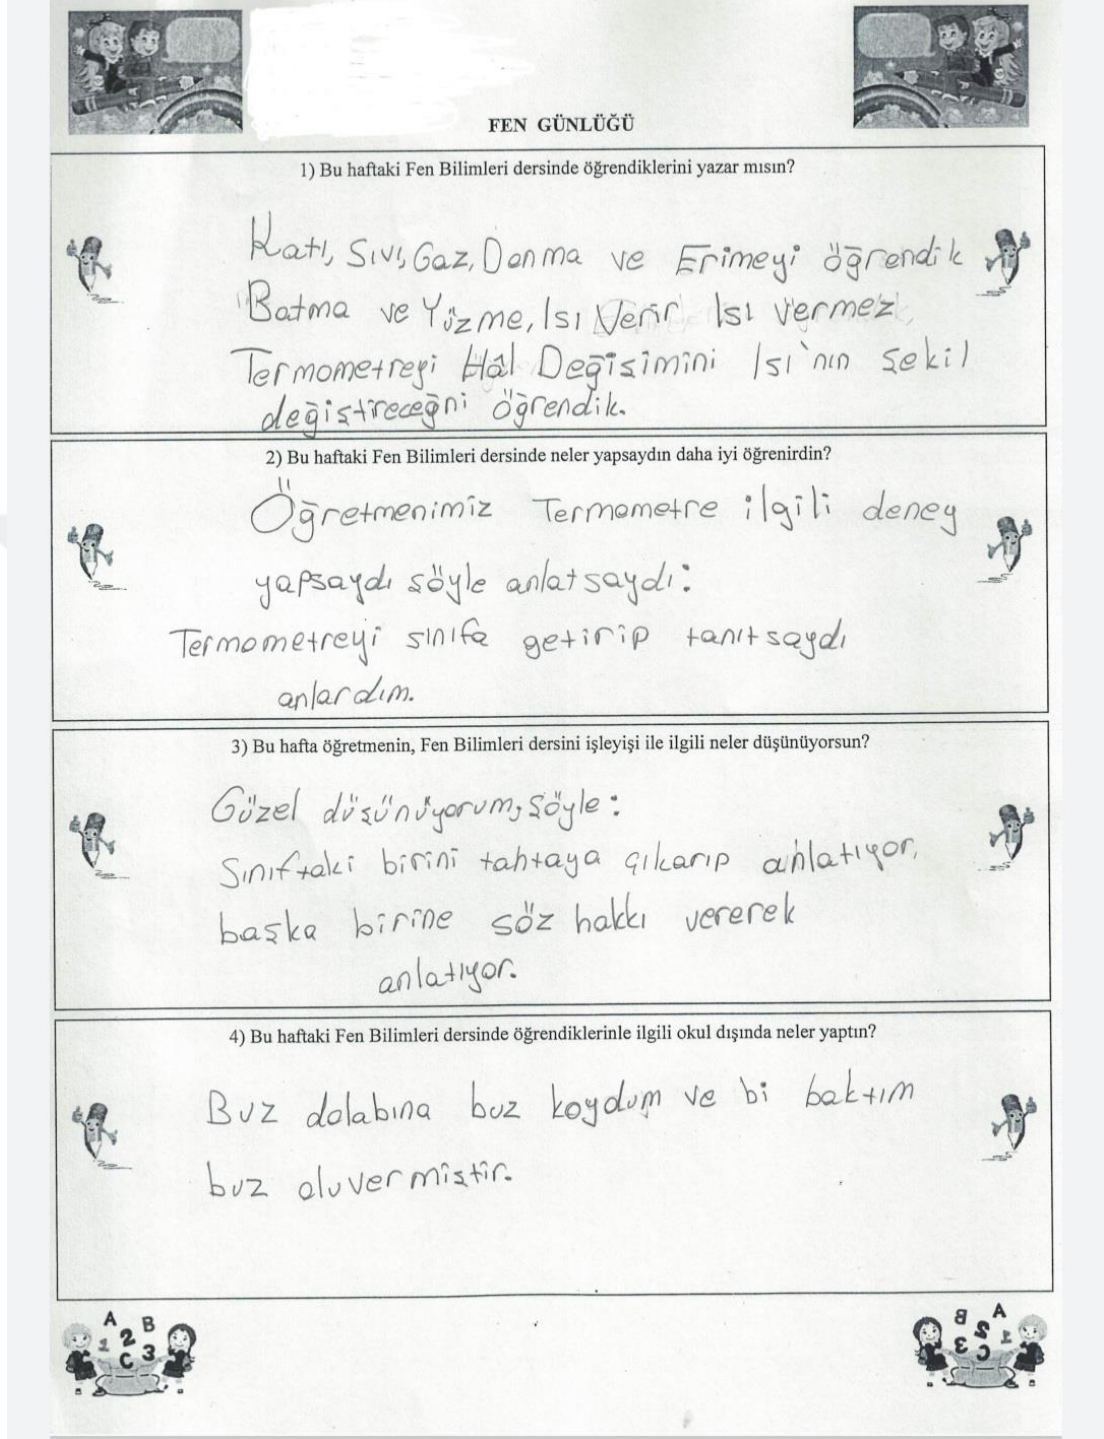 FEN GÜNLÜĞÜ
1) Bu haftaki Fen Bilimleri dersinde öğrendiklerini yazar mısın?
Katı, Sıvı, Gaz, Donma ve Erimeyi öğrendik
Batma ve Yüzme, Isı Verir Isı vermez
Termometreyi Hâl Değişimini Isı'nın şekil
değiştireceğni öğrendik.
2) Bu haftaki Fen Bilimleri dersinde neler yapsaydın daha iyi öğrenirdin?
Öğretmenimiz Termometre ilgili deney
yapsaydı söyle anlatsaydı:
Termometreyi sınıfa getirip tanıtsaydı
anlardım.
3) Bu hafta öğretmenin, Fen Bilimleri dersini işleyişi ile ilgili neler düşünüyorsun?
Güzel düşünüyorum, Şöyle:
Sınıftaki birini tahtaya çıkarıp anlatıyor,
başka birine söz hakkı vererek
anlatıyor.
4) Bu haftaki Fen Bilimleri dersinde öğrendiklerinle ilgili okul dışında neler yaptın?
Buz dolabına buz koydum ve bi baktım
buz oluvermiştir.
A B
1 2
C 3
A B
1 2
C 3